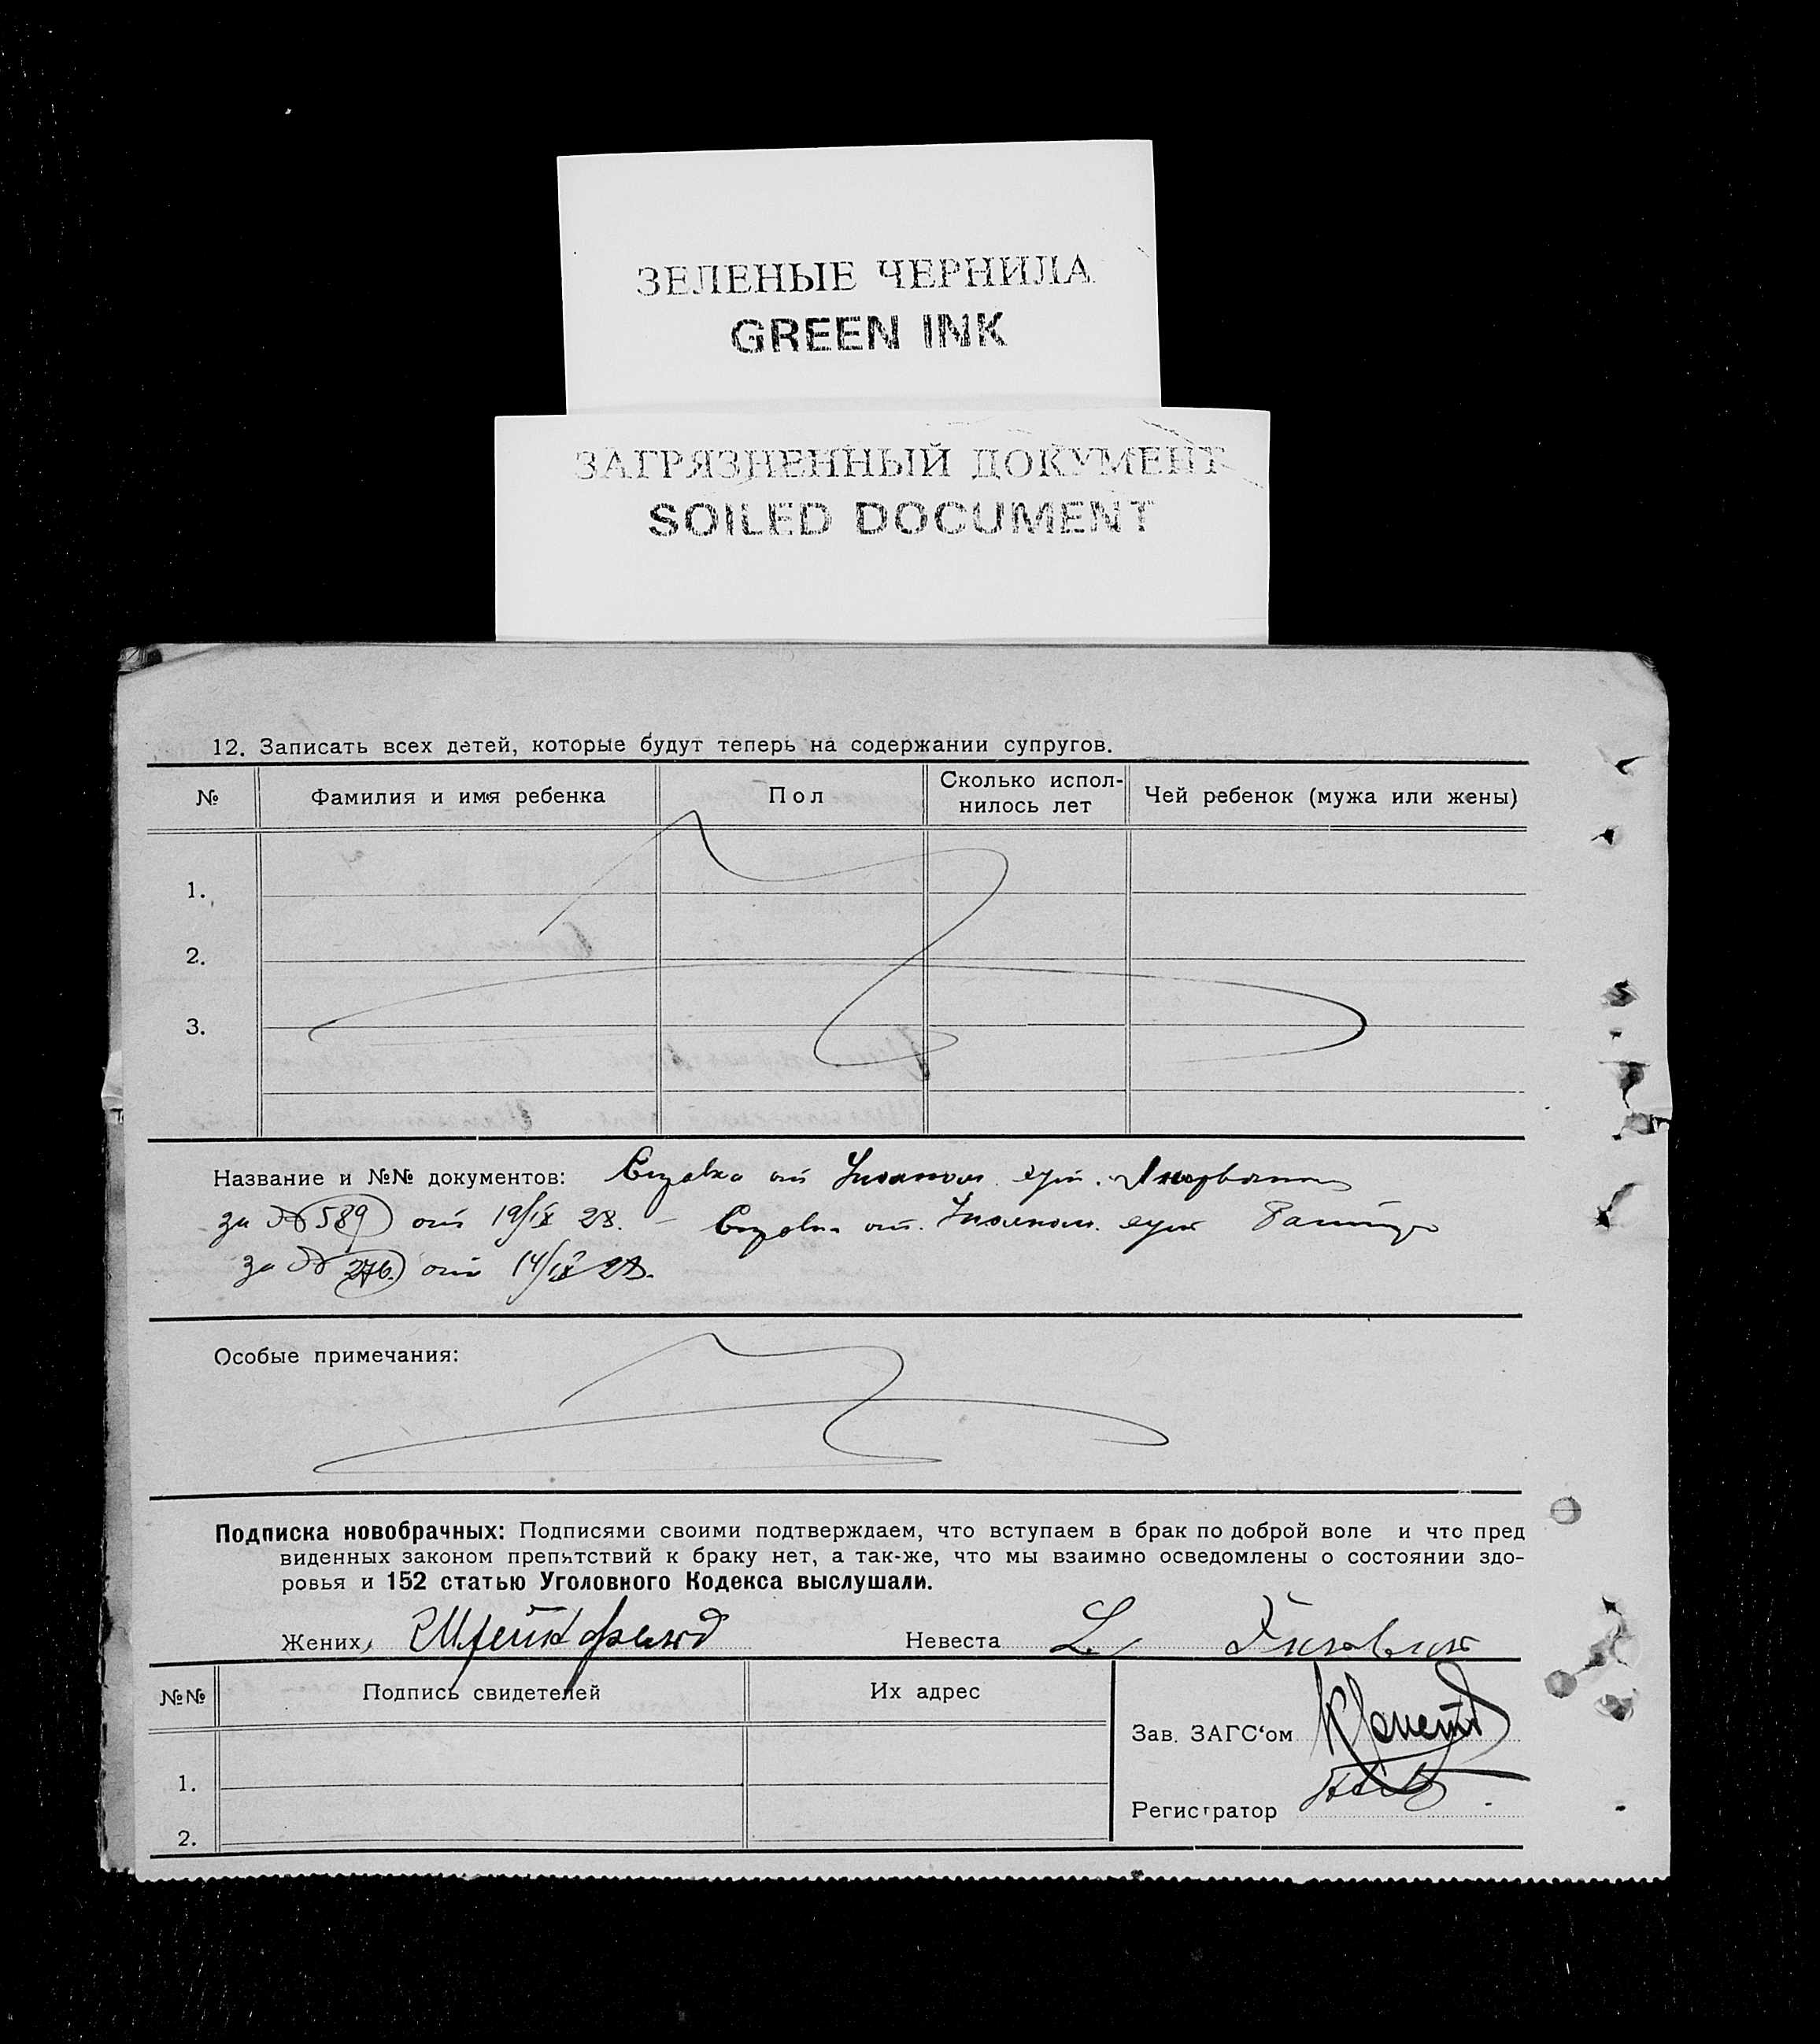 ЗЕЛЕНЫЕ ЧЕРНИЛА
GREEN INK
ЗАГРЯЗНЕННЫЙ ДОКУМЕНТ
SOILED DOCUMENT
12. Записать всех детей, которые будут теперь на содержании супругов.
№ Фамилия и имя ребенка Пол Сколько испол- Чей ребенок (мужа или жены)
нилось лет
1.
2.
3.
Название и №№ документов: Справка от
за № 589 от 19/IX 28. – Справка от.
за № 276. от 14/IX 28.
Особые примечания:
Подписка новобрачных: Подписями своими подтверждаем, что вступаем в брак по доброй воле и что пред
виденных законом препятствий к браку нет, а так-же, что мы взаимно осведомлены о состоянии здо-
ровья и 152 статью Уголовного Кодекса выслушали.
Жених Невеста
№№ Подпись свидетелей Их адрес
Зав. ЗАГС'ом
1.
Регистратор
2.